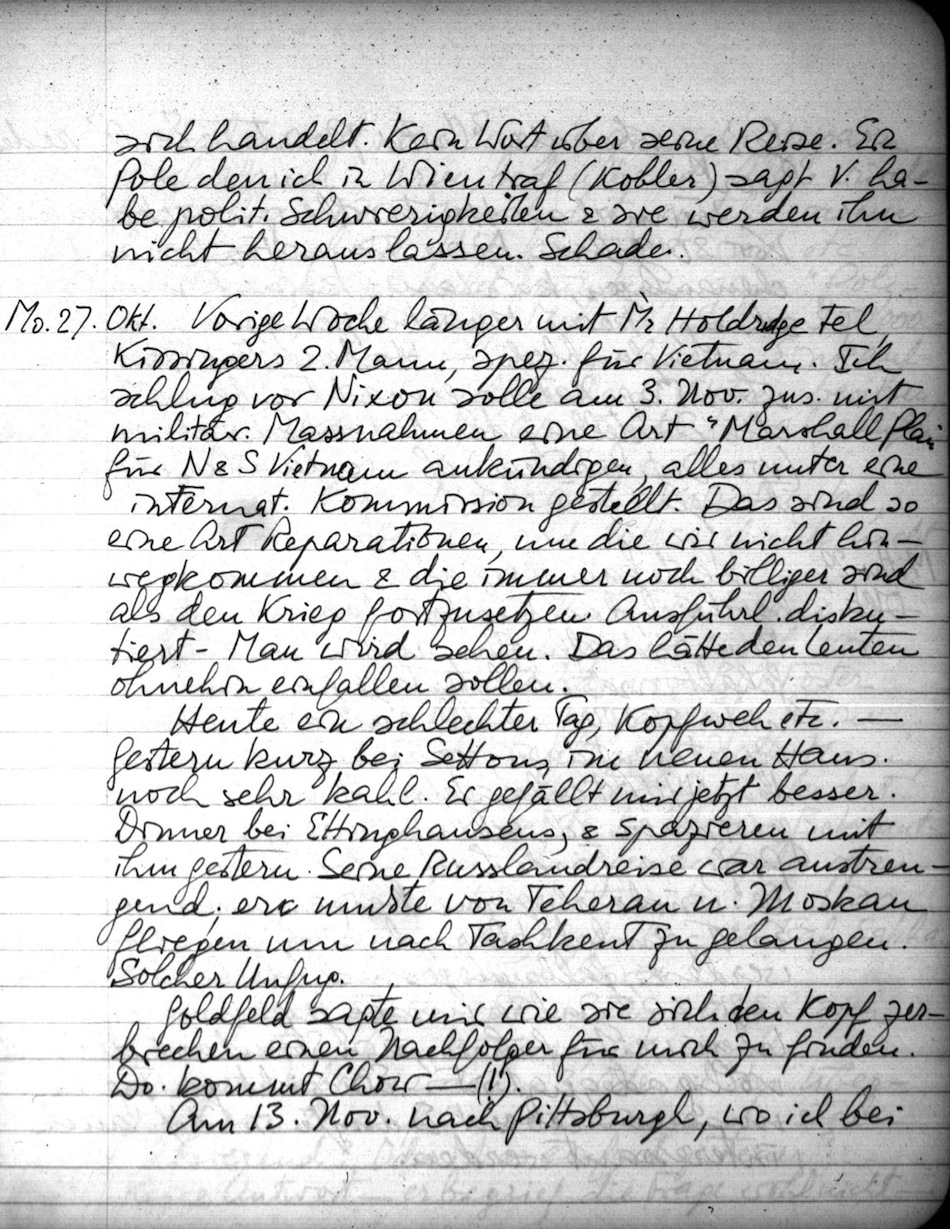 sich handelt. Kein Wort über seine Reise. Ein
Pole den ich in Wien traf (Kobler) sagt V. ha-
be polit. Schwierigkeiten & sie werden ihn
nicht herauslassen. Schade.
Mo. 27. Okt. Vorige Woche länger mit Mr Holdridge Tel,
Kissingers 2. Mann, spez. für Vietnam. Ich
schlug vor Nixon solle am 3. Nov. zus. mit
militär. Massnahmen eine Art "Marshall Plan
für N & S Vietnam ankündigen, alles unter eine
internat. Kommission gestellt. Das sind so
eine Art Reparationen, um die wir nicht hin-
wegkommen & die immer noch billiger sind
als den Krieg fortzusetzen. Ausführl. disku-
tiert - Man wird sehen. Das hätte den Leuten
ohnehin einfallen sollen.
Heute ein schlechter Tag, Kopfweh etc. —
Gestern kurz bei Settons im neuen Haus.
noch sehr kahl. Er gefällt mir jetzt besser.
Dinner bei Ettinghausens, & Spazieren mit
ihm gestern. Seine Russlandreise war anstren-
gend; er musste von Teheran n. Moskau
fliegen um nach Tashkent zu gelangen.
Solcher Unfug.
Goldfeld sagte mir wie sie sich den Kopf zer-
brechen einen Nachfolger für mich zu finden.
Do. kommt Chow — (!).
Am 13. Nov. nach Pittsburgh, wo ich bei